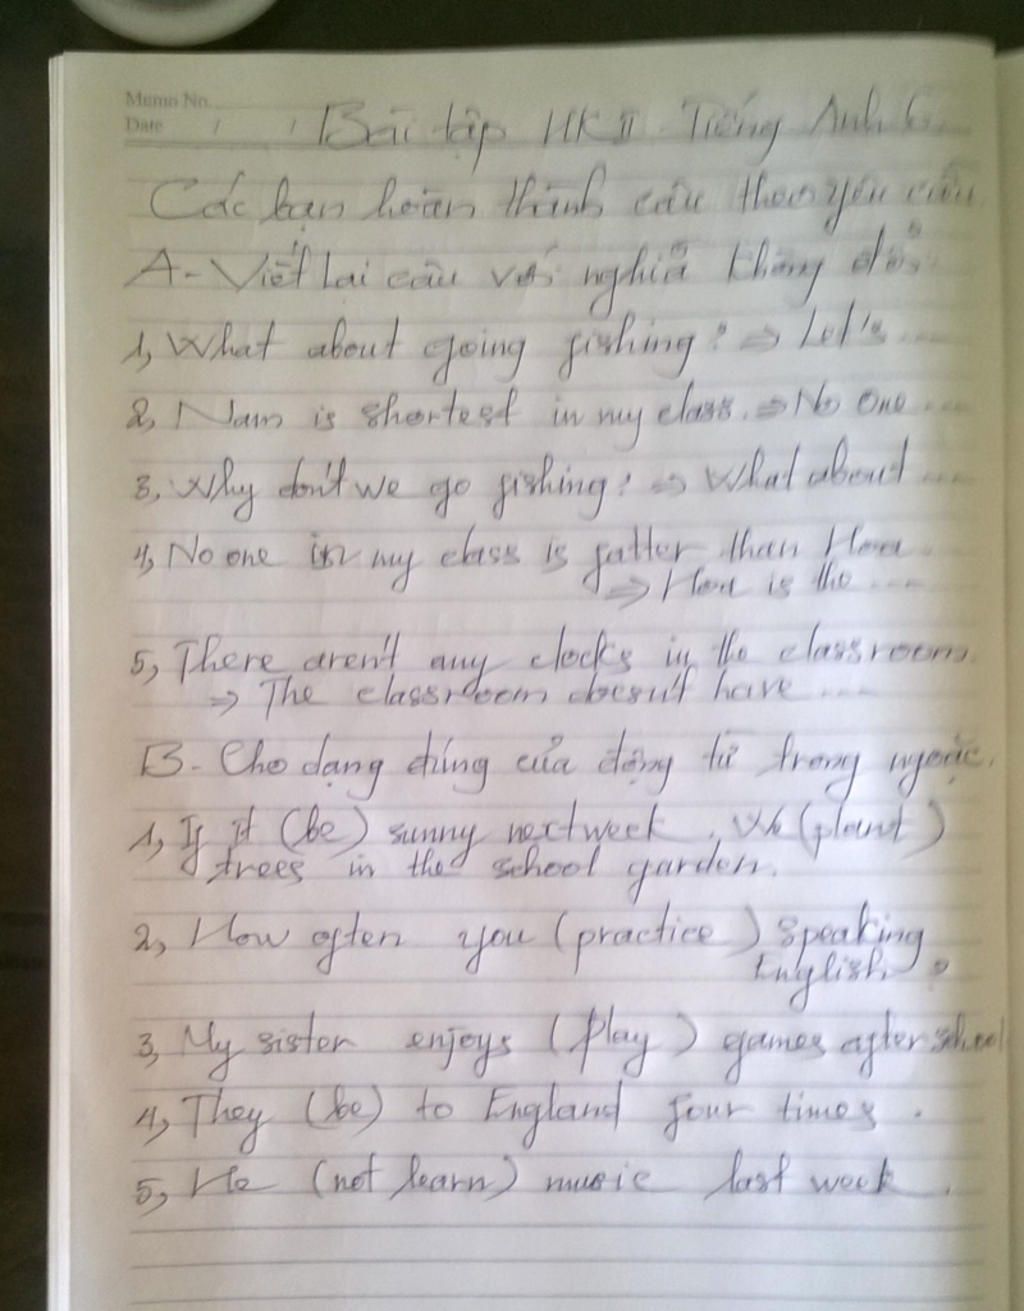 Memo No.
Date / /
Bài tập HK II Tiếng Anh 6
Các bạn hoàn thành câu theo yêu cầu
A- Viết lại câu với nghĩa không đổi
1, What about going fishing? => Let's ....
2, Nam is shortest in my class. => No one ....
3, Why don't we go fishing? => What about ....
4, No one in my class is fatter than Hoa.
=> Hoa is the ....
5, There aren't any clocks in the classroom.
=> The classroom doesn't have ....
B- Cho dạng đúng của động từ trong ngoặc.
1, If it (be) sunny next week, We (plant)
trees in the school garden.
2, How often you (practice) speaking
English?
3, My sister enjoys (play) games after school
4, They (be) to England four times.
5, He (not learn) music last week.